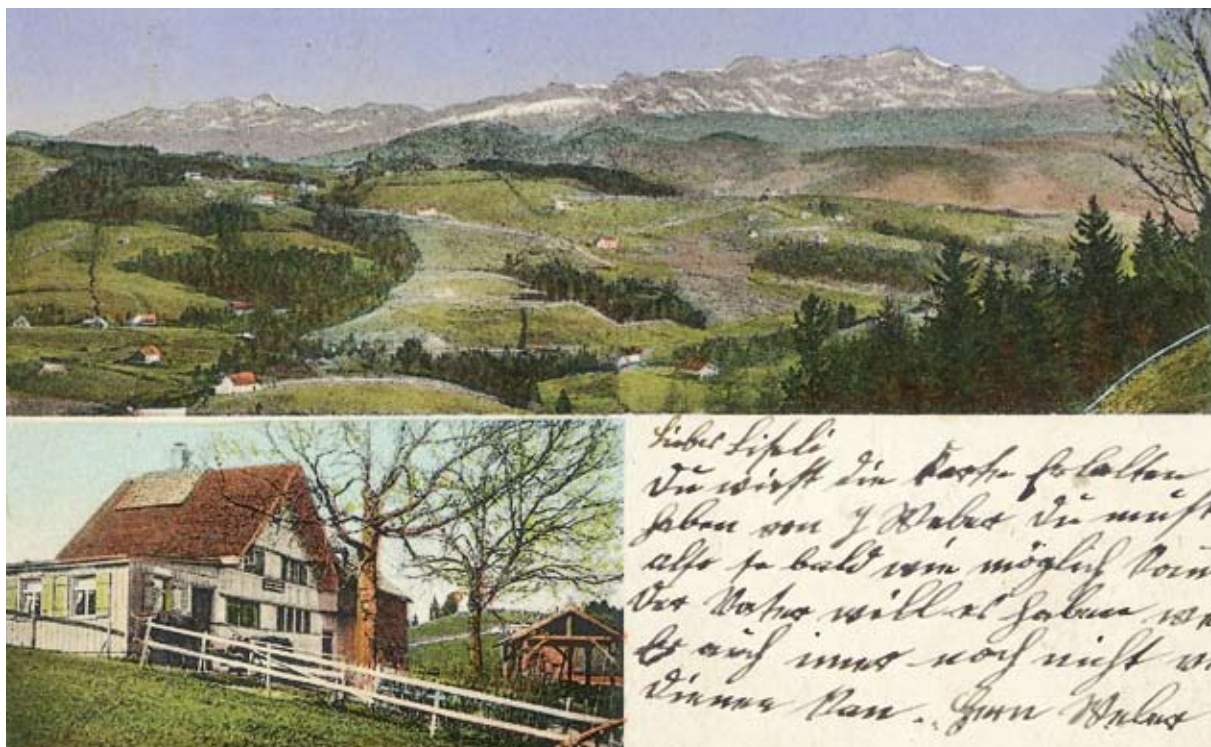 Liebes Liseli
Du wirst die Karte Erhalten
haben von J Weber, Du must
also so bald wie möglich kom
der Vater will es haben we
Er auch imer noch nicht ve
dienen kan. Herr Weber